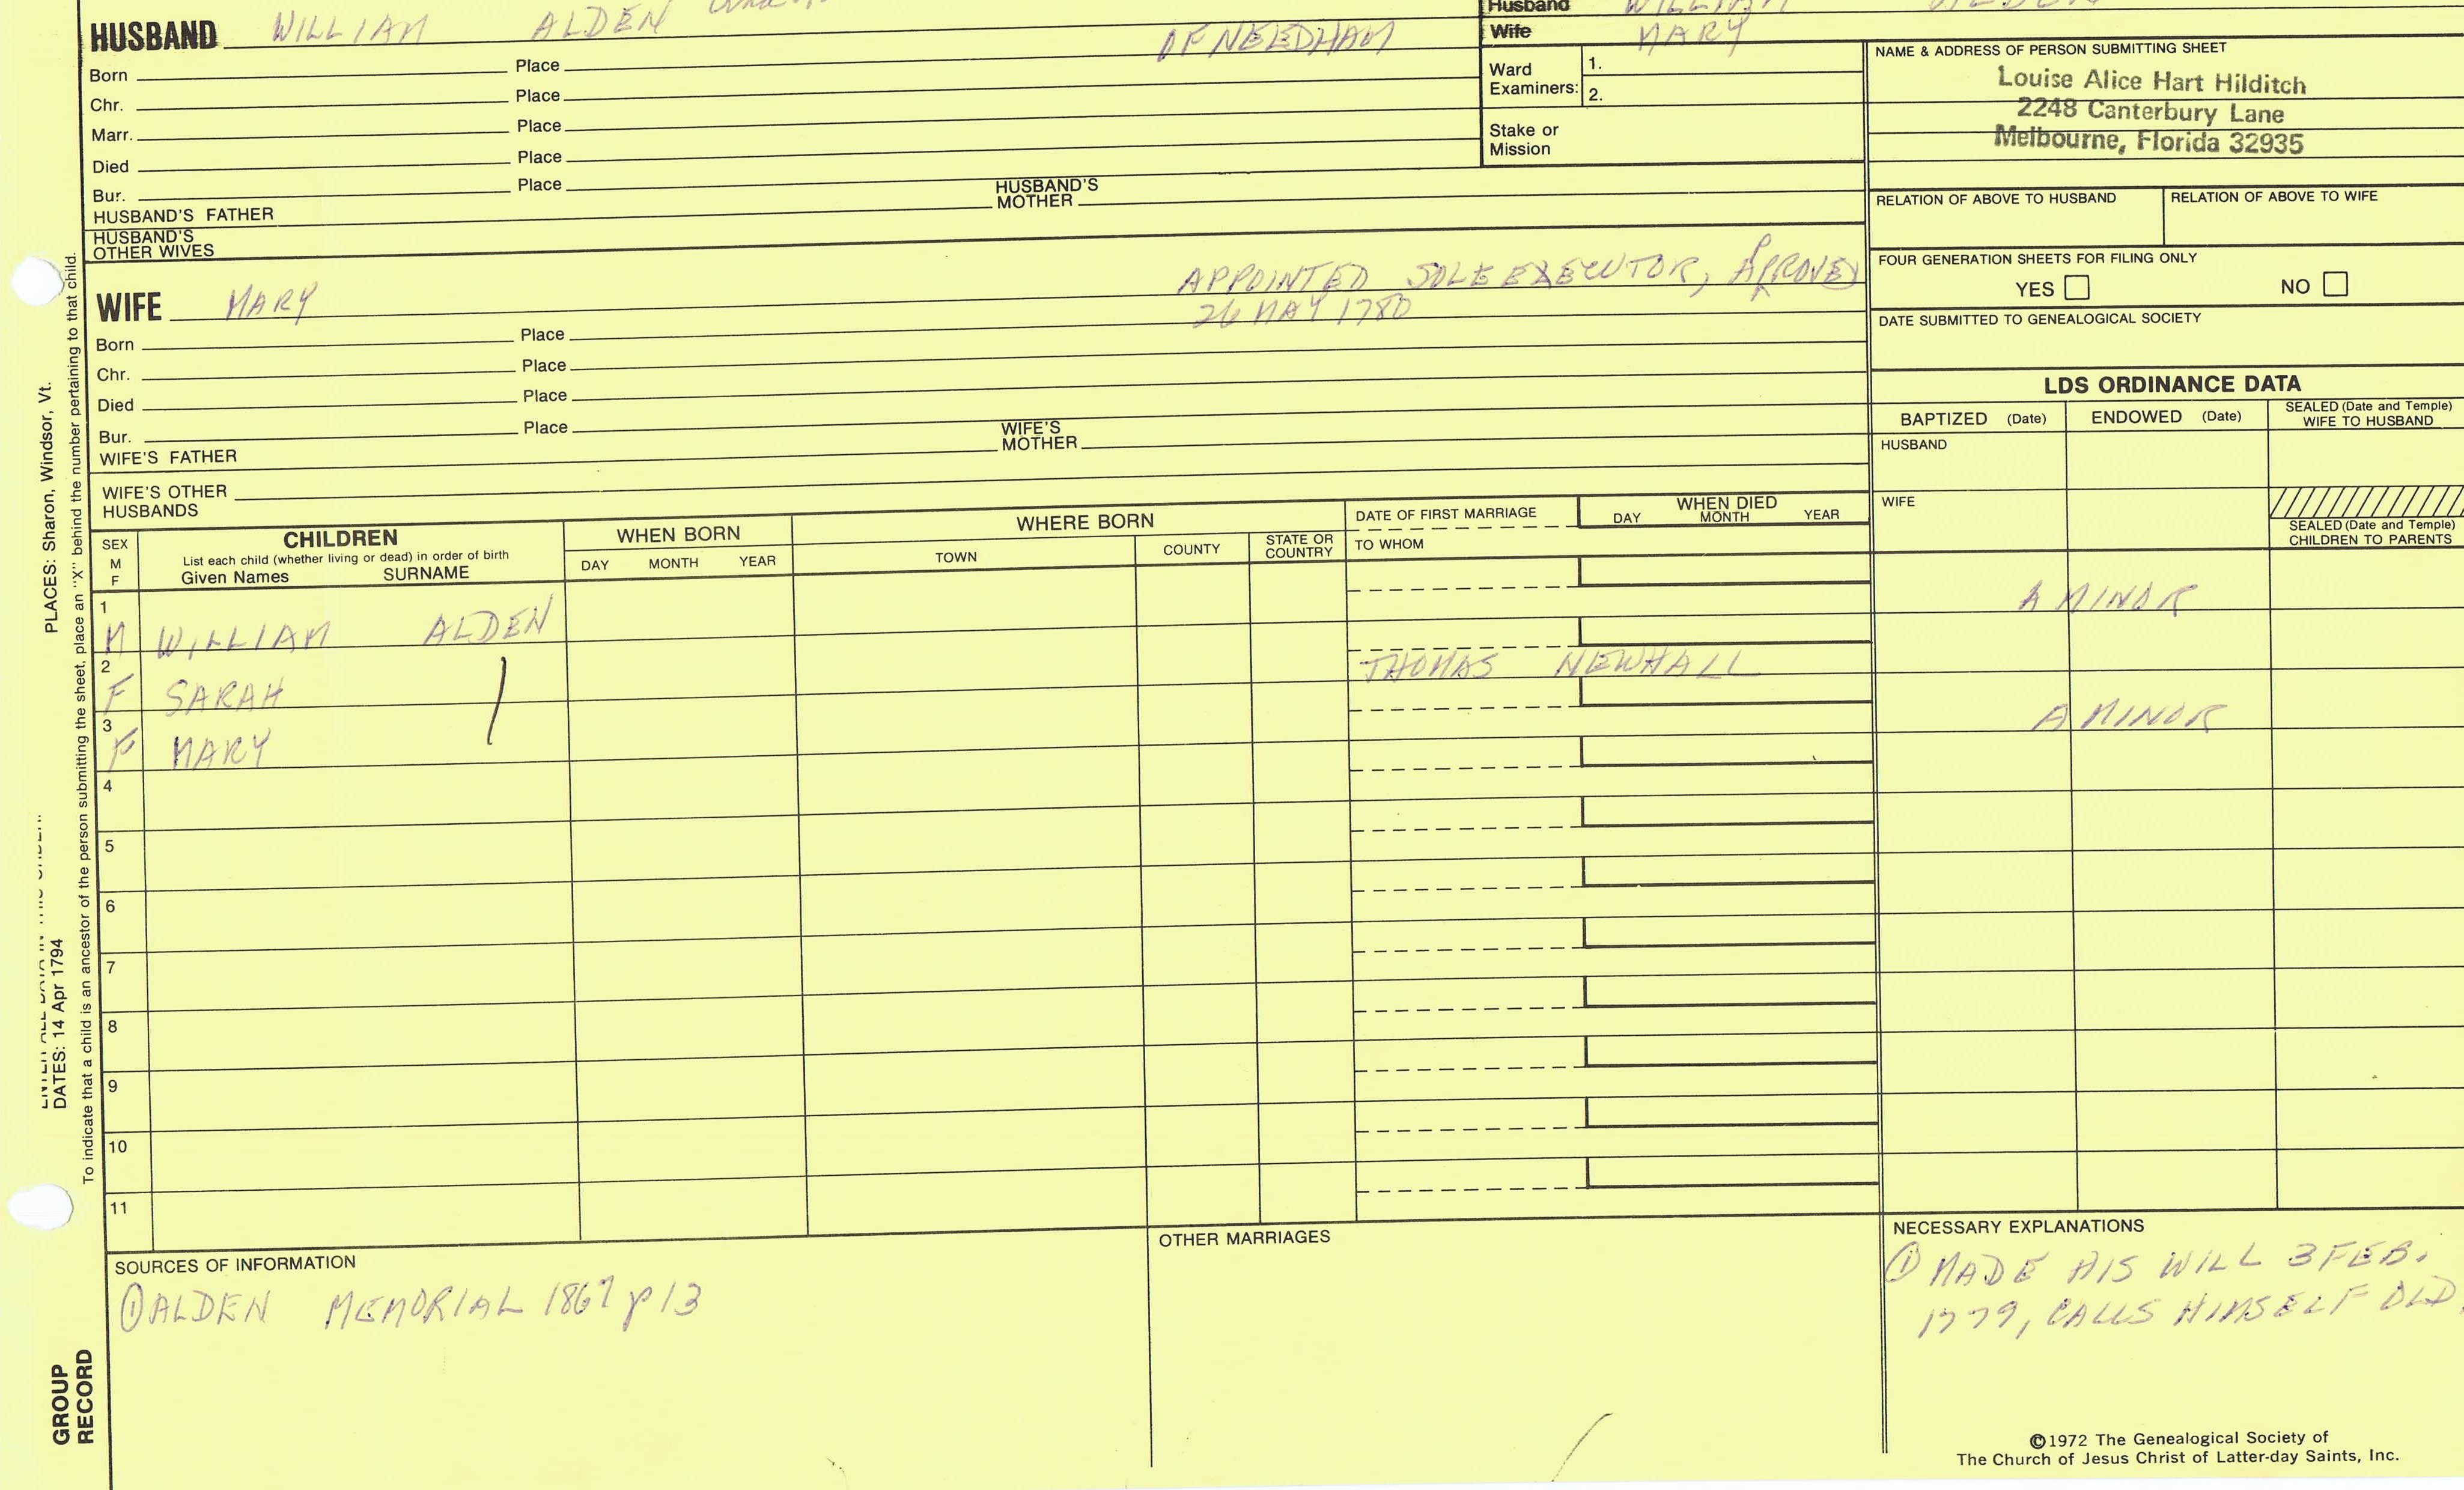 HUSBAND WILLIAM ALDEN OF NEEDHAM
Born Place
Chr. Place
Marr. Place
Died Place
Bur. Place
HUSBAND'S FATHER HUSBAND'S MOTHER
HUSBAND'S OTHER WIVES
Husband WILLIAM ALDEN
Wife MARY
Ward Examiners: 1.
2.
Stake or Mission
NAME & ADDRESS OF PERSON SUBMITTING SHEET
Louise Alice Hart Hilditch
2248 Canterbury Lane
Melbourne, Florida 32935
RELATION OF ABOVE TO HUSBAND RELATION OF ABOVE TO WIFE
FOUR GENERATION SHEETS FOR FILING ONLY
YES NO
DATE SUBMITTED TO GENEALOGICAL SOCIETY
WIFE MARY APPOINTED SOLE EXECUTOR, APPROVED
26 MAY 1780
Born Place
Chr. Place
Died Place
Bur. Place
WIFE'S FATHER WIFE'S MOTHER
WIFE'S OTHER HUSBANDS
LDS ORDINANCE DATA
BAPTIZED (Date) ENDOWED (Date) SEALED (Date and Temple) WIFE TO HUSBAND
HUSBAND
WIFE
SEALED (Date and Temple) CHILDREN TO PARENTS
SEX M F
CHILDREN
List each child (whether living or dead) in order of birth
Given Names SURNAME
WHEN BORN
DAY MONTH YEAR
WHERE BORN
TOWN COUNTY STATE OR COUNTRY
DATE OF FIRST MARRIAGE
TO WHOM
WHEN DIED
DAY MONTH YEAR
1 M WILLIAM ALDEN A MINOR
2 F SARAH THOMAS NEWHALL
3 F MARY A MINOR
4
5
6
7
8
9
10
11
SOURCES OF INFORMATION
① ALDEN MEMORIAL 1867 p 13
OTHER MARRIAGES
NECESSARY EXPLANATIONS
① MADE HIS WILL 3 FEB.
1779, CALLS HIMSELF OLD
©1972 The Genealogical Society of
The Church of Jesus Christ of Latter-day Saints, Inc.
PLACES: Sharon, Windsor, Vt.
DATES: 14 Apr 1794
To indicate that a child is an ancestor of the person submitting the sheet, place an "X" behind the number pertaining to that child.
GROUP
RECORD